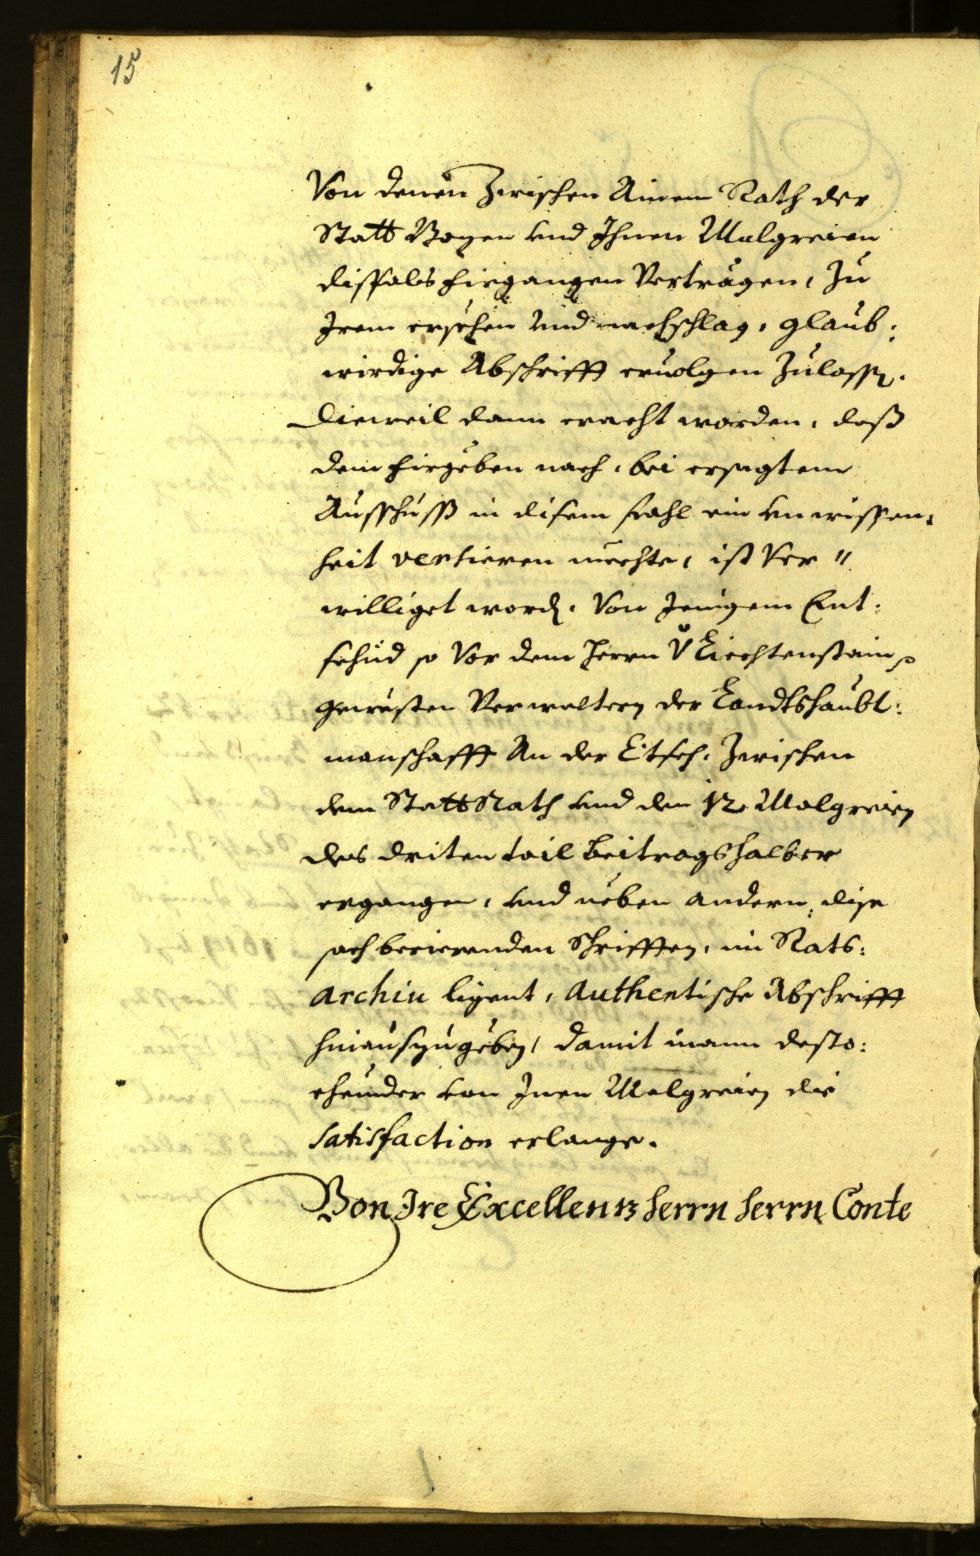 15
Von denen Zwischen Ainem Rath der
Statt Bozen vnd Ihnen Malgreien
dissfals fürgangen Verträgen, Zu
Irem ersehen vnd nachschlag, glaub:
wirdige Abschrifft eruolgen Zulassen.
Dieweil dann eracht worden, daß
dem fürgeben nach, bei ersagtem
Ausschuss in disem fahl ein vnwissen,
heit versieren mechte, ist Ver"
williget worden. Von Jenigem Ent:
schid so Vor dem Herrn V Liechtenstain
gewesten Verwaltern der Landtshaubt:
manschafft An der Etsch, Zwischen
dem StattRath vnd den 12 Malgreien
des driten tail beitrags halber
ergangen, vnd neben andern, dise
sach berierenden Schrifften, im Rats:
Archiu ligent, Authentische Abschrifft
hinauszugeben, damit mann desto:
ehunder von Inen Malgreien die
Satisfaction erlange.
Von Ire Excellentz herrn herrn Conte